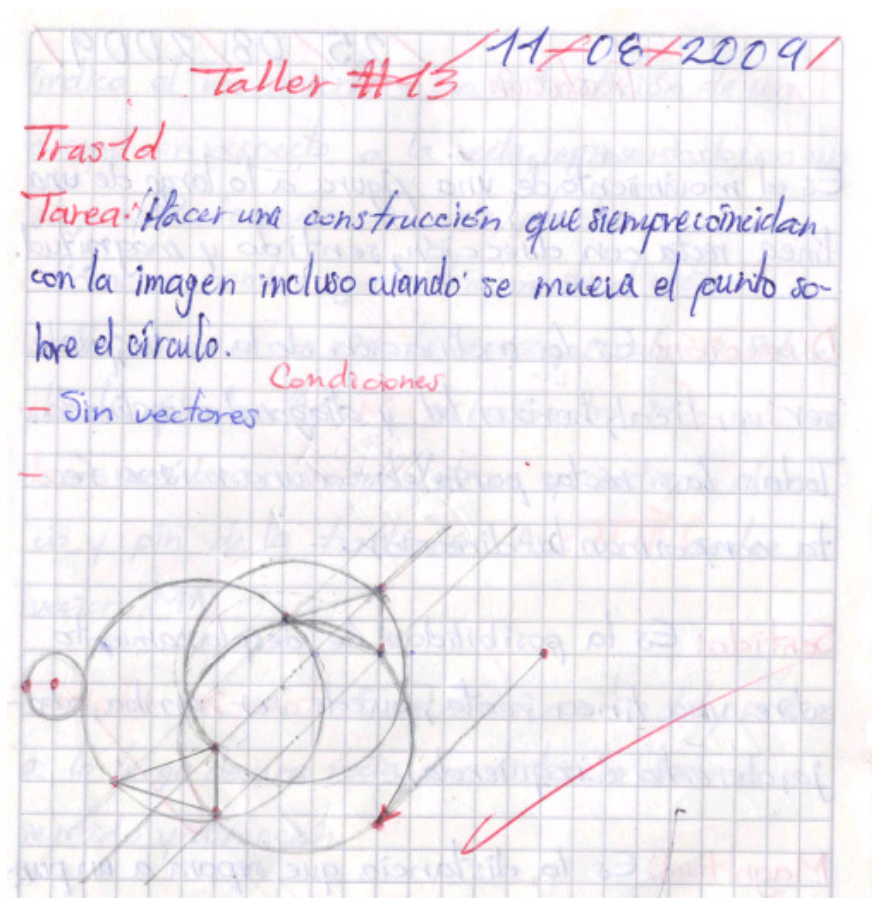 11/08/2009/
Taller #13
Tras1d
Tarea: Hacer una construcción que siempre coincidan
con la imagen incluso cuando se mueva el punto so-
bre el círculo.
Condiciones
- Sin vectores
-